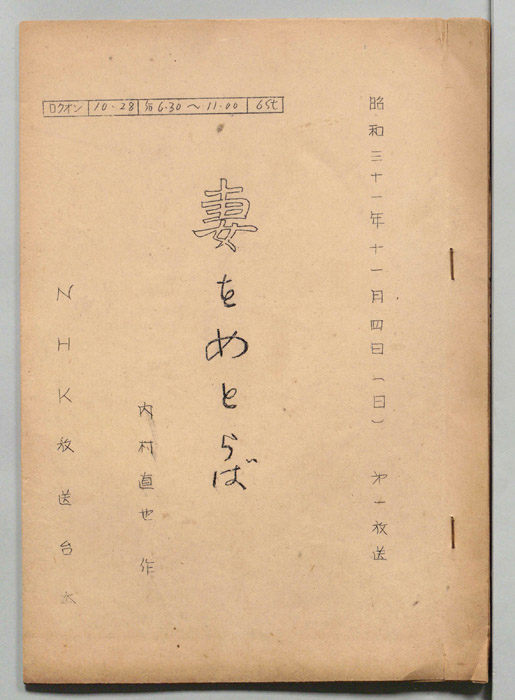 昭和三十一年十一月四日(日) 第一放送
ロクオン 10.28 6.30〜11.00 6st
妻をめとらば
内村直也 作
NHK放送台本